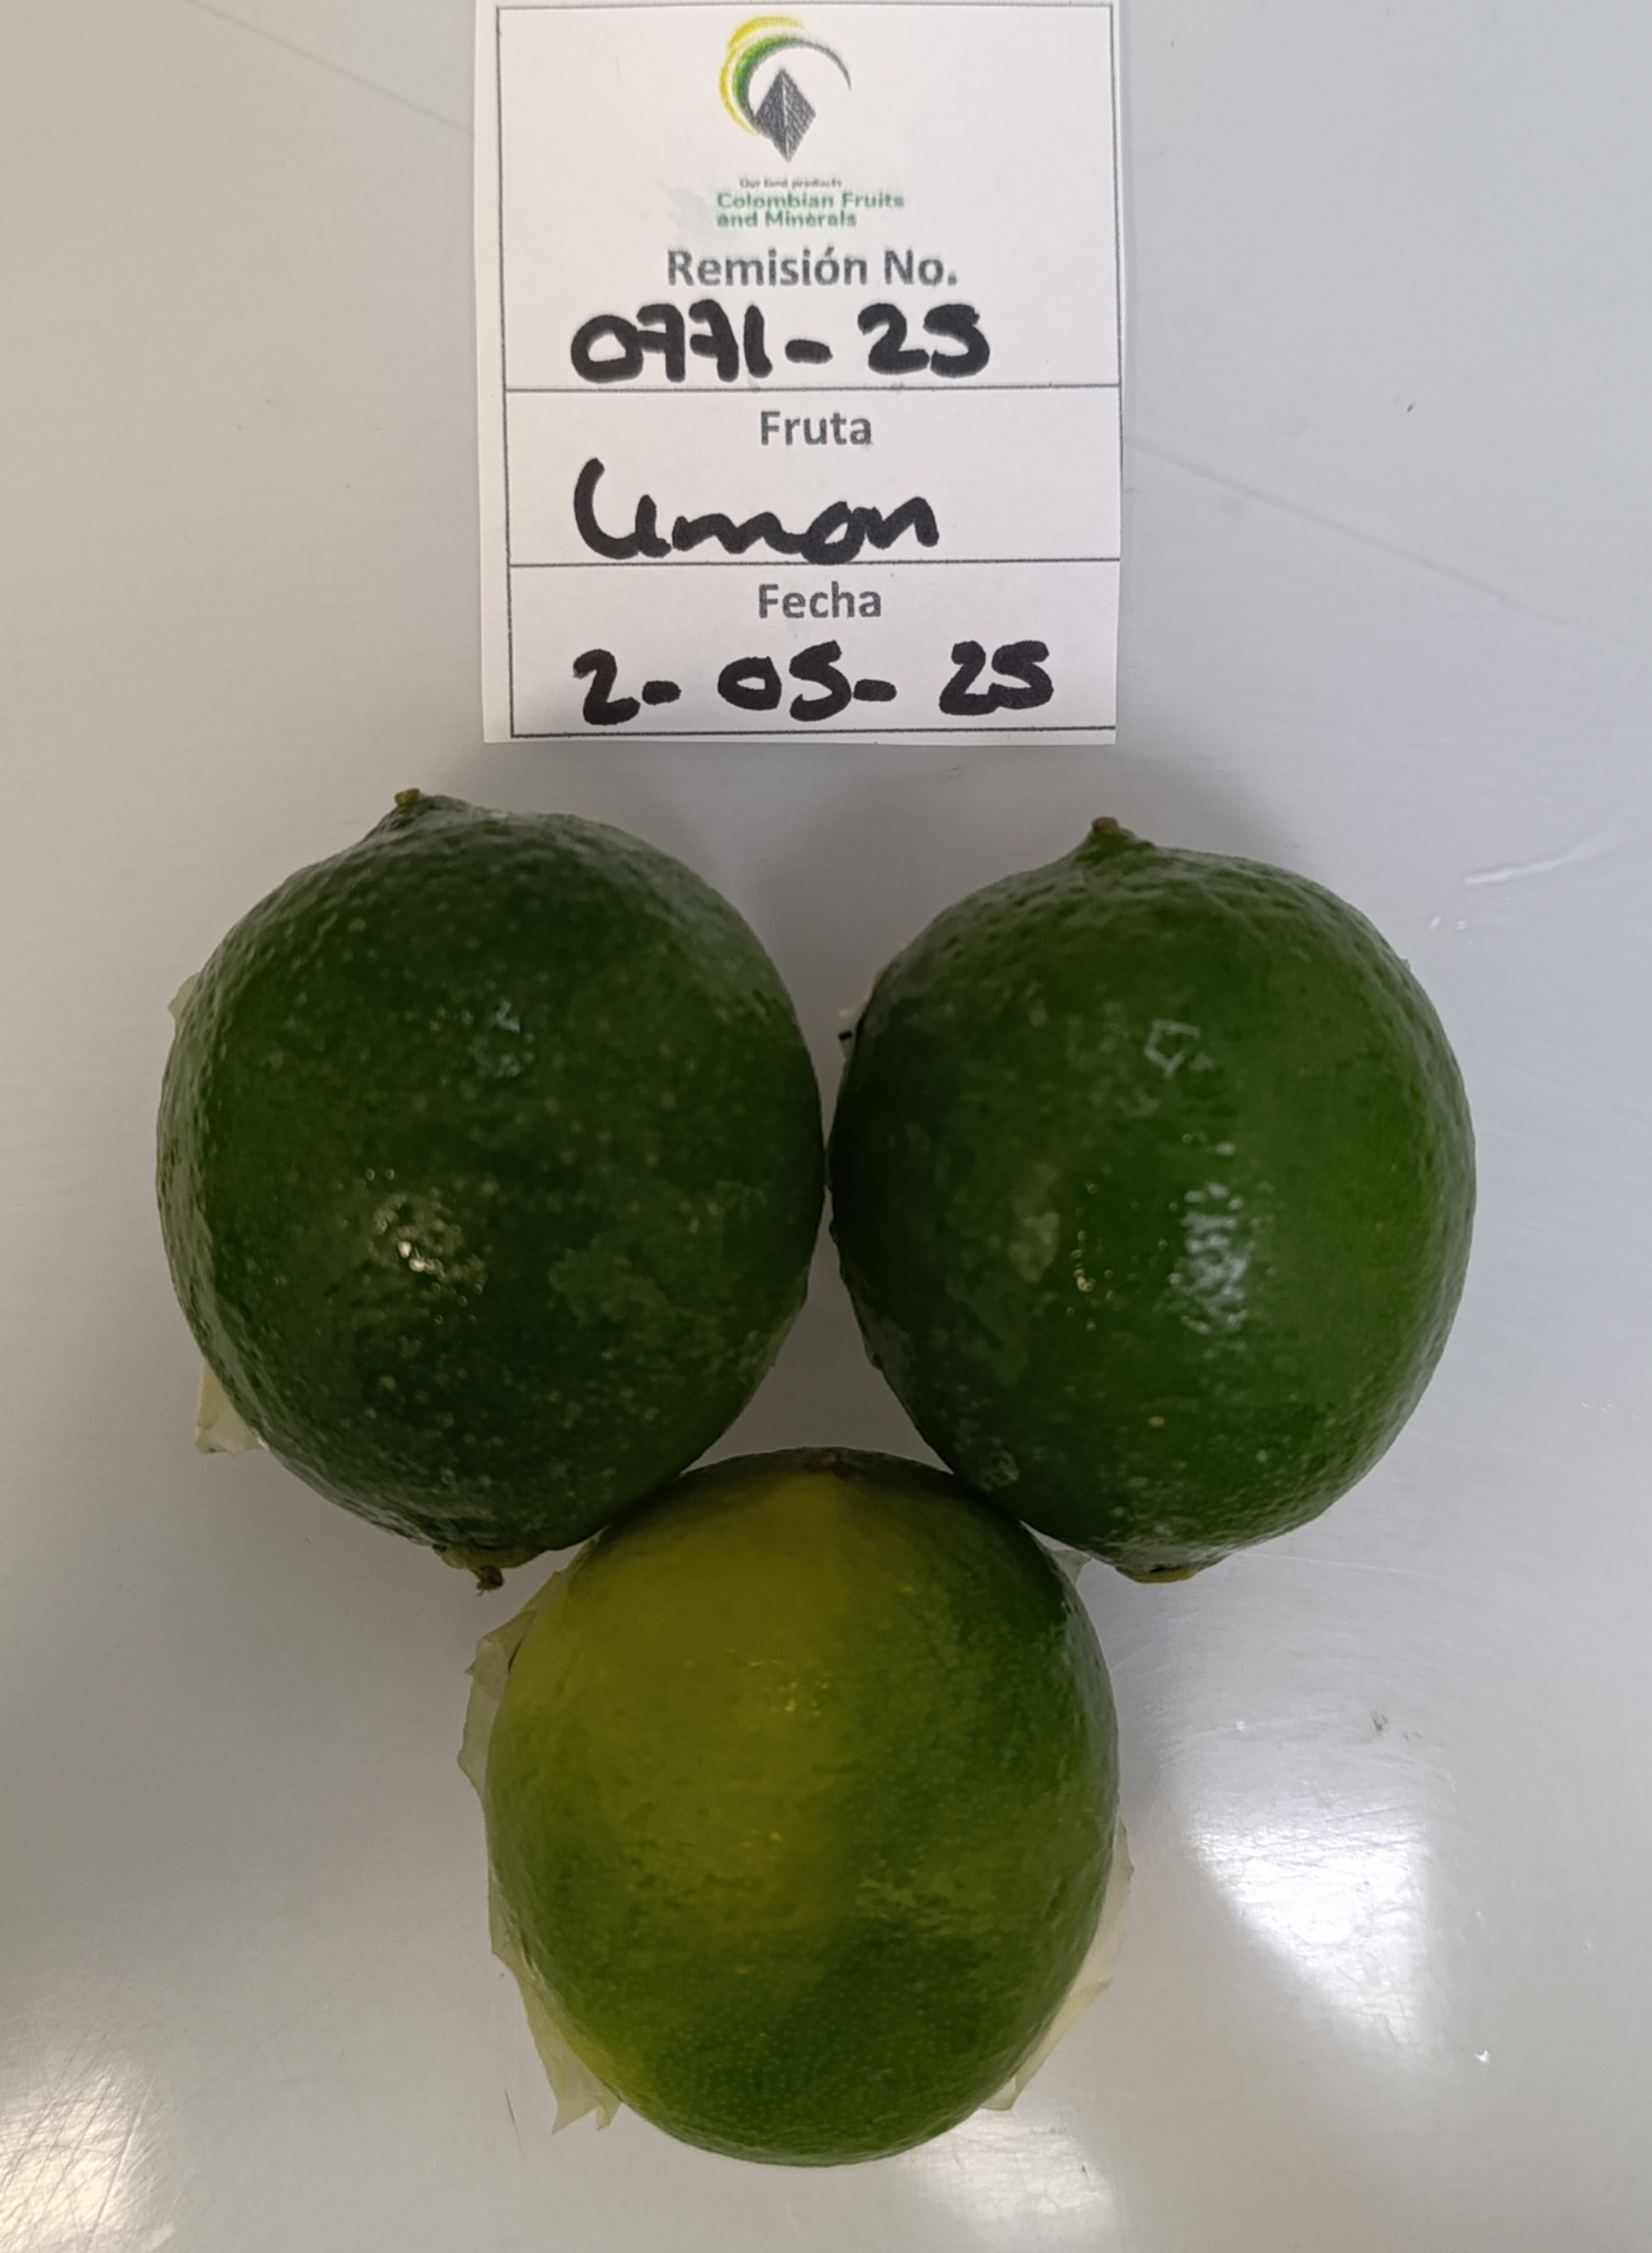 Our land products
Colombian Fruits
and Minerals
Remisión No.
0771-25
Fruta
Limon
Fecha
2-05-25